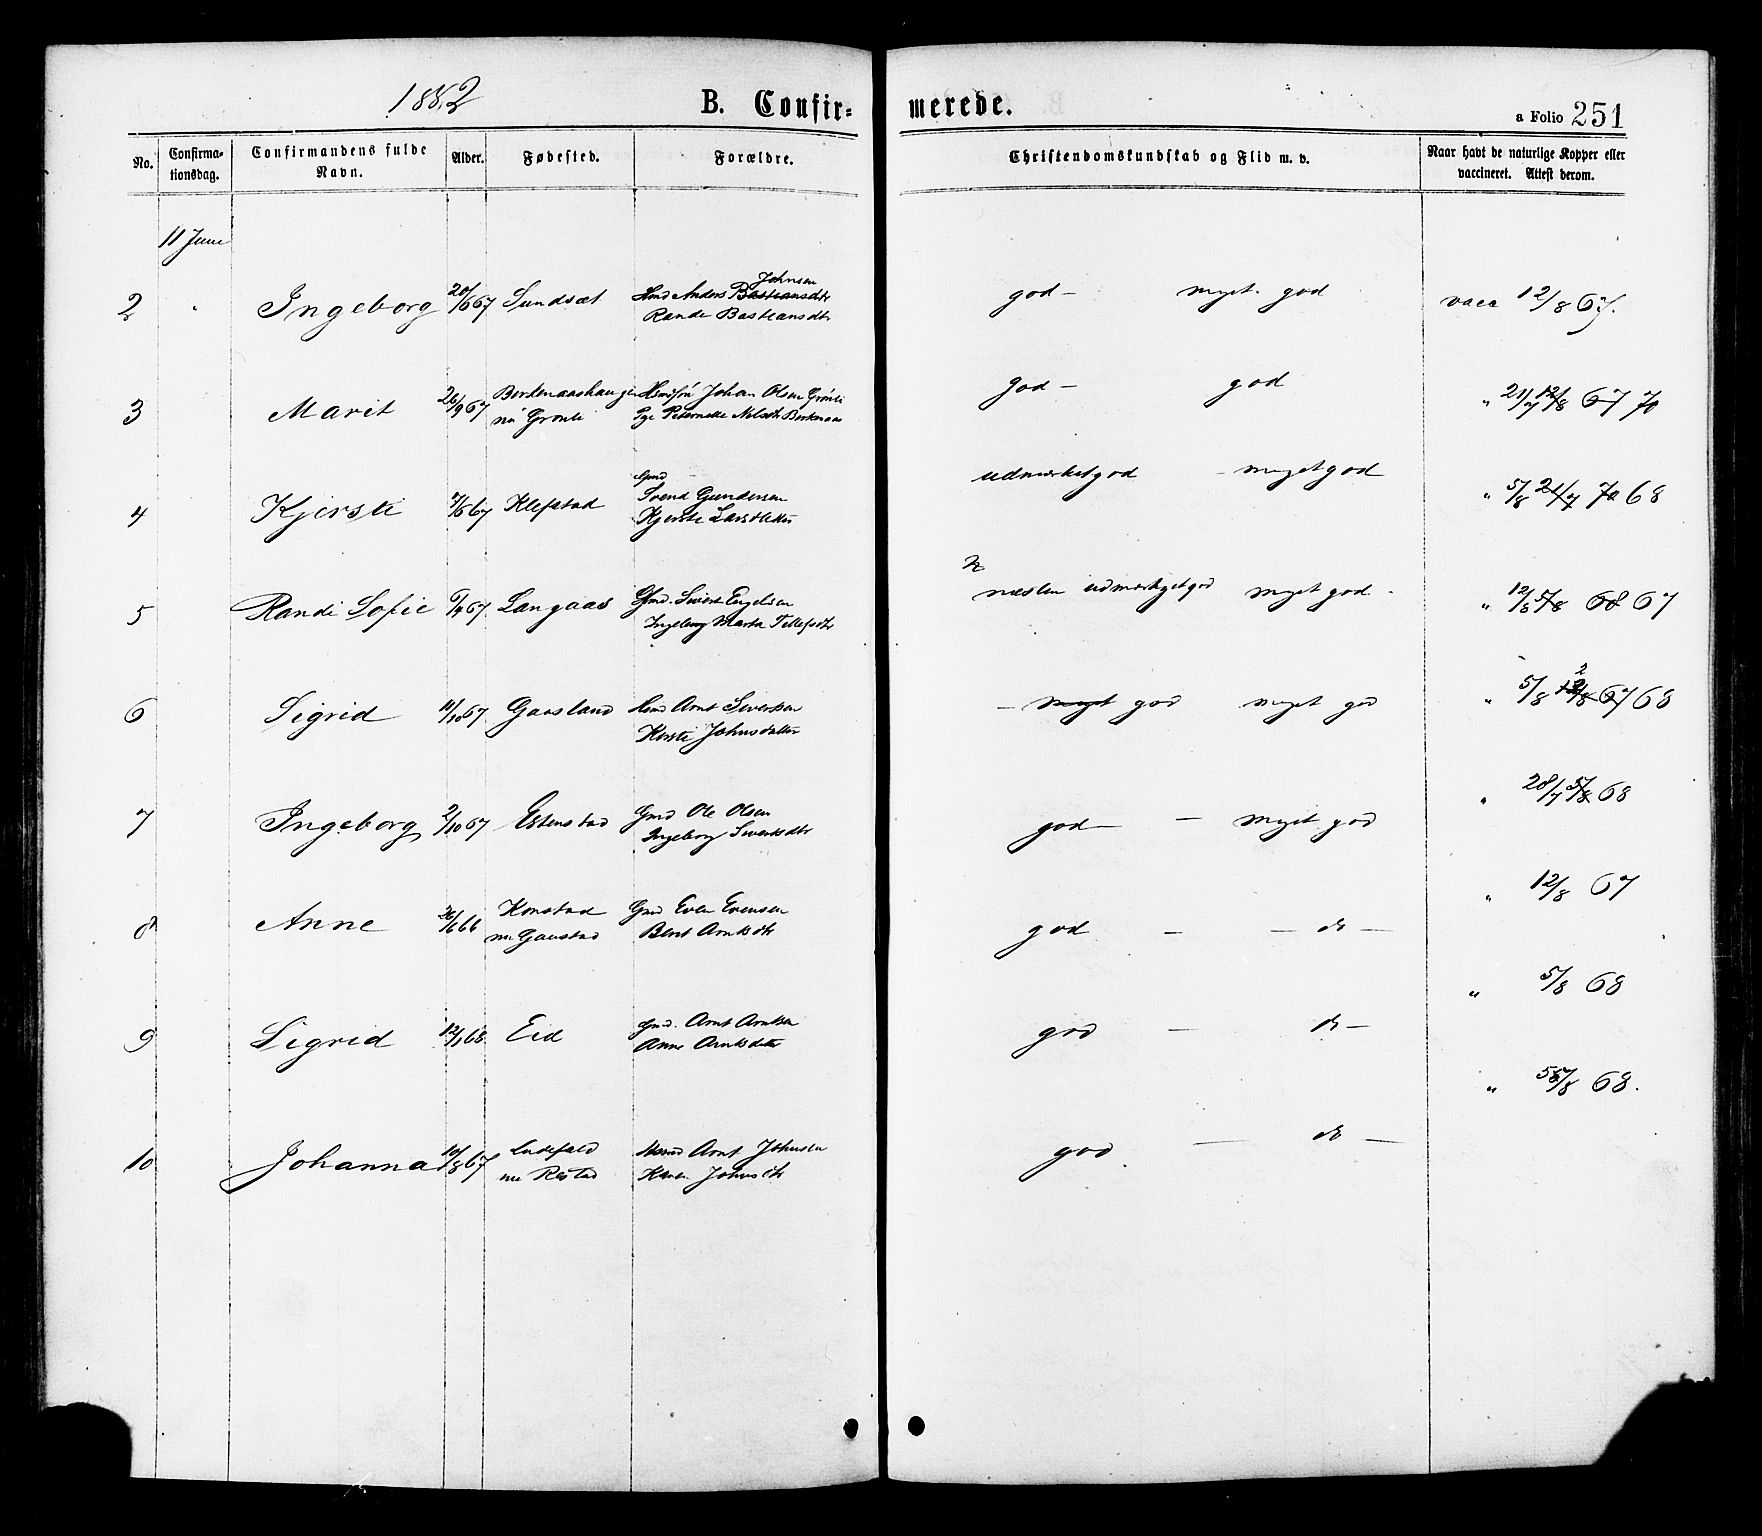 1882 B. Confir- merede. a Folio 251
No. Confirma-tionsdag. Confirmandens fulde Navn. Alder. Fødested. Forældre. Christendomskundskab og Flid m. v. Naar havt de naturlige Kopper eller vaccineret. Attest derom.
11 Juni
Johnsen
2 " Ingeborg 20/6 67 Sundsæt Hmd Anders Bastiansdtr god - myget god vacc 12/8 67.
Rande Bastiansdtr
3 Marit 26/9 67 Berkenaashaugen Johan Olsen Grönli god - god " 21/7 12/8 67 70
nu Grönli Pge Peternelle Nilsdtr Berkenaas
Gmd
4 Kjersti 7/6 67 Klefstad Svend Gundersen udmærketgod - mygetgod " 5/8 21/7 70 68
Kjersti Larsdatter
5 Randi Sofie 6/9 67. Langaas Gmd. Sivert Engelsen næsten udmærkget god myget god - " 12/8 5/8 68 67
Ingeborg Marta Tillefsdtr
6 Sigrid 11/10 67. Gaasland Hmd Arnt Sivertsen - myget god myget god " 5/8 12/8 67 68
Kersti Johnsdatter
7 Ingeborg 2/10 67 Estenstad Gmd Ole Olsen god - myget god " 28/7 5/8 68
Ingeborg Sivertsdtr
8 Anne 26/6 66 Konstad Gmd Even Evensen god - - do - " 12/8 67
nu Gaustad Berit Arntsdtr
9 Sigrid 12/1 68 Eid Gmd. Arnt Arntsen god - do - " 5/8 68
Anne Arntsdatter
" 5/8 68.
10 Johanna 10/8 67 Ludefald Arnt Johnsen god - do -
nu Rostad Karen Johnsdtr